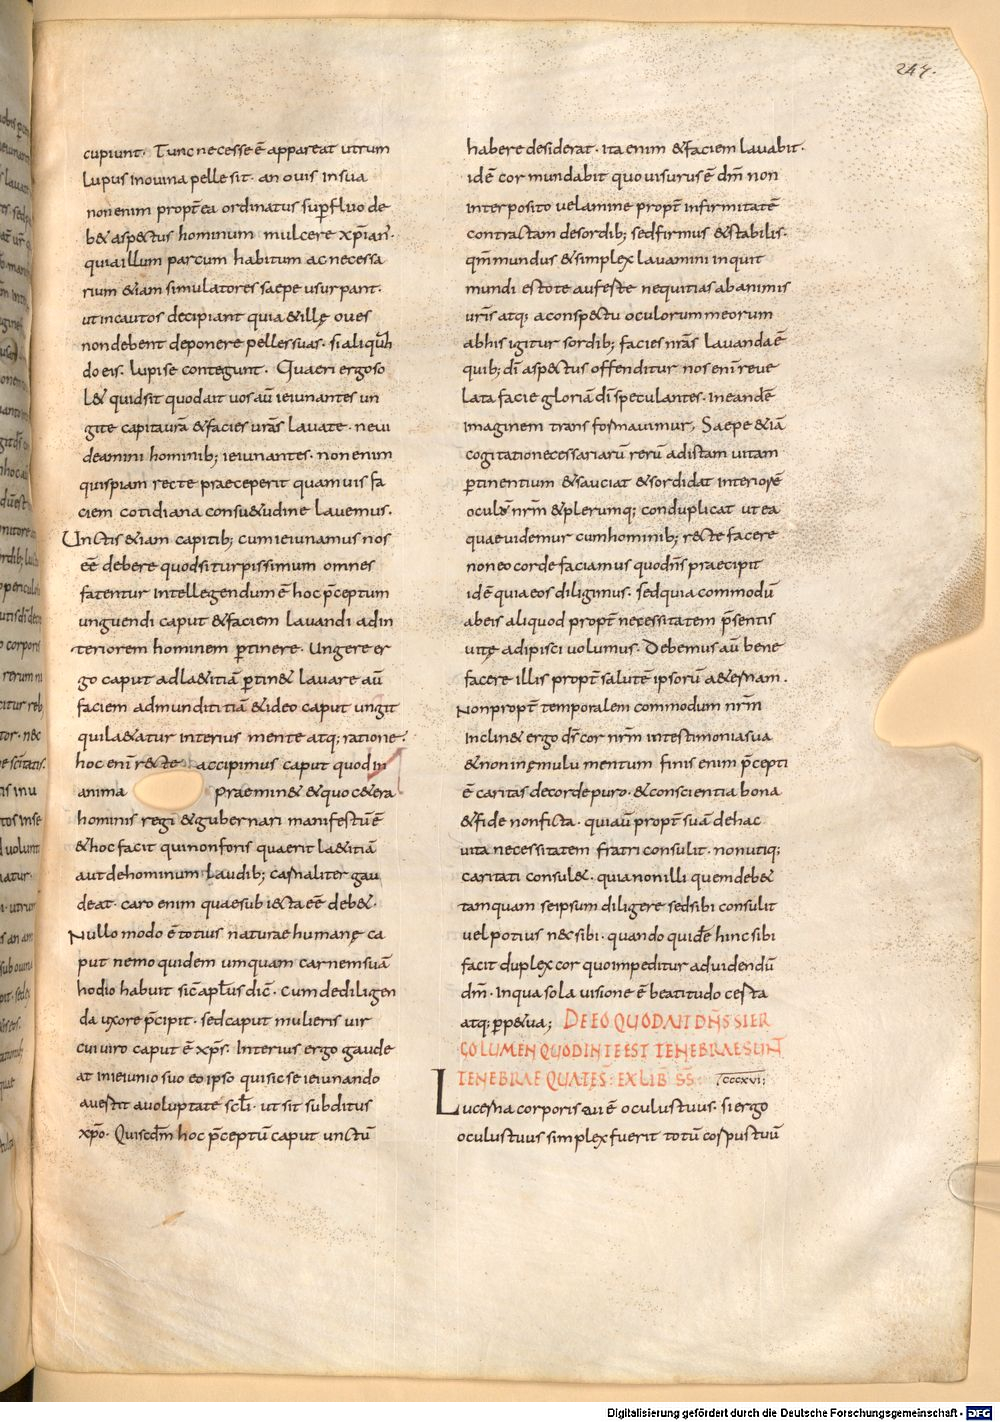 247.
cupiunt. Tunc necesse ē appareat utrum
lupus in ouina pelle sit. an ouis in sua
non enim propt̄ ea ordinatus sup̄fluo de
b& asp&tus hominum mulcere xp̄ian̄.
quia illum parcum habitum ac necessa
rium &iam simulatores saepe usurpant.
ut incautos decipiant quia & illę oues
non debent deponere pelles suas. si
do eis. lupi se contegunt. Quaeri ergo so
l& quid sit quod ait uos aū ieiunantes un
gite capita ur̄a & facies ur̄as lauate. ne ui
deamini hominib; ieiunantes. non enim
quispiam recte praeceperit quamuis fa
ciem cotidiana consu&udine lauemus.
Unctis &iam capitib; cum ieiunamus nos
eē debere quod si turpissimum omnes
fatentur intellegendum ē hoc p̄ceptum
unguendi caput & faciem lauandi ad in
teriorem hominem p̄tinere. Ungere er
go caput ad la&itiā p̄tin& lauare aū
faciem ad munditiā & ideo caput ungit
qui la&atur interius mente atq; ratione.
hoc enī r&te accipimus caput quod in
anima praemin& & quo c&era
hominis regi & gubernari manifestū ē
& hoc facit qui non foris quaerit la&itiā
aut de hominum laudib; carnaliter gau
deat. caro enim quae subiecta eē deb&.
Nullo modo ē totius naturae humanę ca
put nemo quidem umquam carnem suā
hodio habuit sic̄ apl̄us dic̄. Cum de diligen
da uxore p̄cipit. sed caput mulieris uir
cui uiro caput ē xp̄s. Interius ergo gaude
at in ieiunio suo eo ipso qui sic se ieiunando
auertit a uoluptate scl̄i. ut sit subditus
xp̄o. Qui hoc p̄ceptū caput unctū
habere desiderat. ita enim & faciem lauabit.
idē cor mundabit quo uisurus ē dm̄ non
interposito uelamine propt̄ infirmitatē
contractam de sordib; sed firmus & stabilis.
qm̄ mundus & simplex lauamini inquit
mundi estote auferte nequitias ab animis
ur̄is atq; a conspectu oculorum meorum
ab his igitur sordib; facies nr̄as lauanda ē
quib; dī aspectus offenditur nos enī reue
lata facie gloriā dī speculantes. In eandē
imaginem transformauimur, Saepe &iā
cogitatio necessariarū rerū ad istam uitam
p̄tinentium & sauciat & sordidat interiorē
oculū nr̄m & plerumq; conduplicat ut ea
quae uidemur cum hominib; recte facere
non eo corde faciamus quo dn̄s praecipit
idē quia eos diligimus. sed quia commodū
ab eis aliquod propt̄ necessitatem p̄sentis
uitę adipisci uolumus. Debemus aū bene
facere illis propt̄ salutē ipsorū a&ernam.
Non propt̄ temporalem commodum nr̄m
Inclin& ergo ds̄ cor nr̄m in testimonia sua
& non in ęmulumentum finis enim p̄cepti
ē caritas de corde puro. & conscientia bona
& fide non ficta. qui aū propt̄ suā de hac
uita necessitatem fratri consulit. non utiq;
caritati consul&. quia non illi quem deb&
tamquam se ipsum diligere sed sibi consulit
uel potius n&sibi. quando quidē hinc sibi
facit duplex cor quo impeditur ad uidendū
dm̄. In qua sola uisione ē beatitudo certa
atq; p̄p&ua; DE EO QUOD AIT DN̄S SI ER
GO LUMEN QUOD IN TE EST TENEBRAE SUNT
TENEBRAE QUATES: EX LIB SS. CCCXVI;
Lucerna corporis tui ē oculus tuus. si ergo
oculus tuus simplex fuerit totū corpus tuū
Digitalisierung gefördert durch die Deutsche Forschungsgemeinschaft - DFG